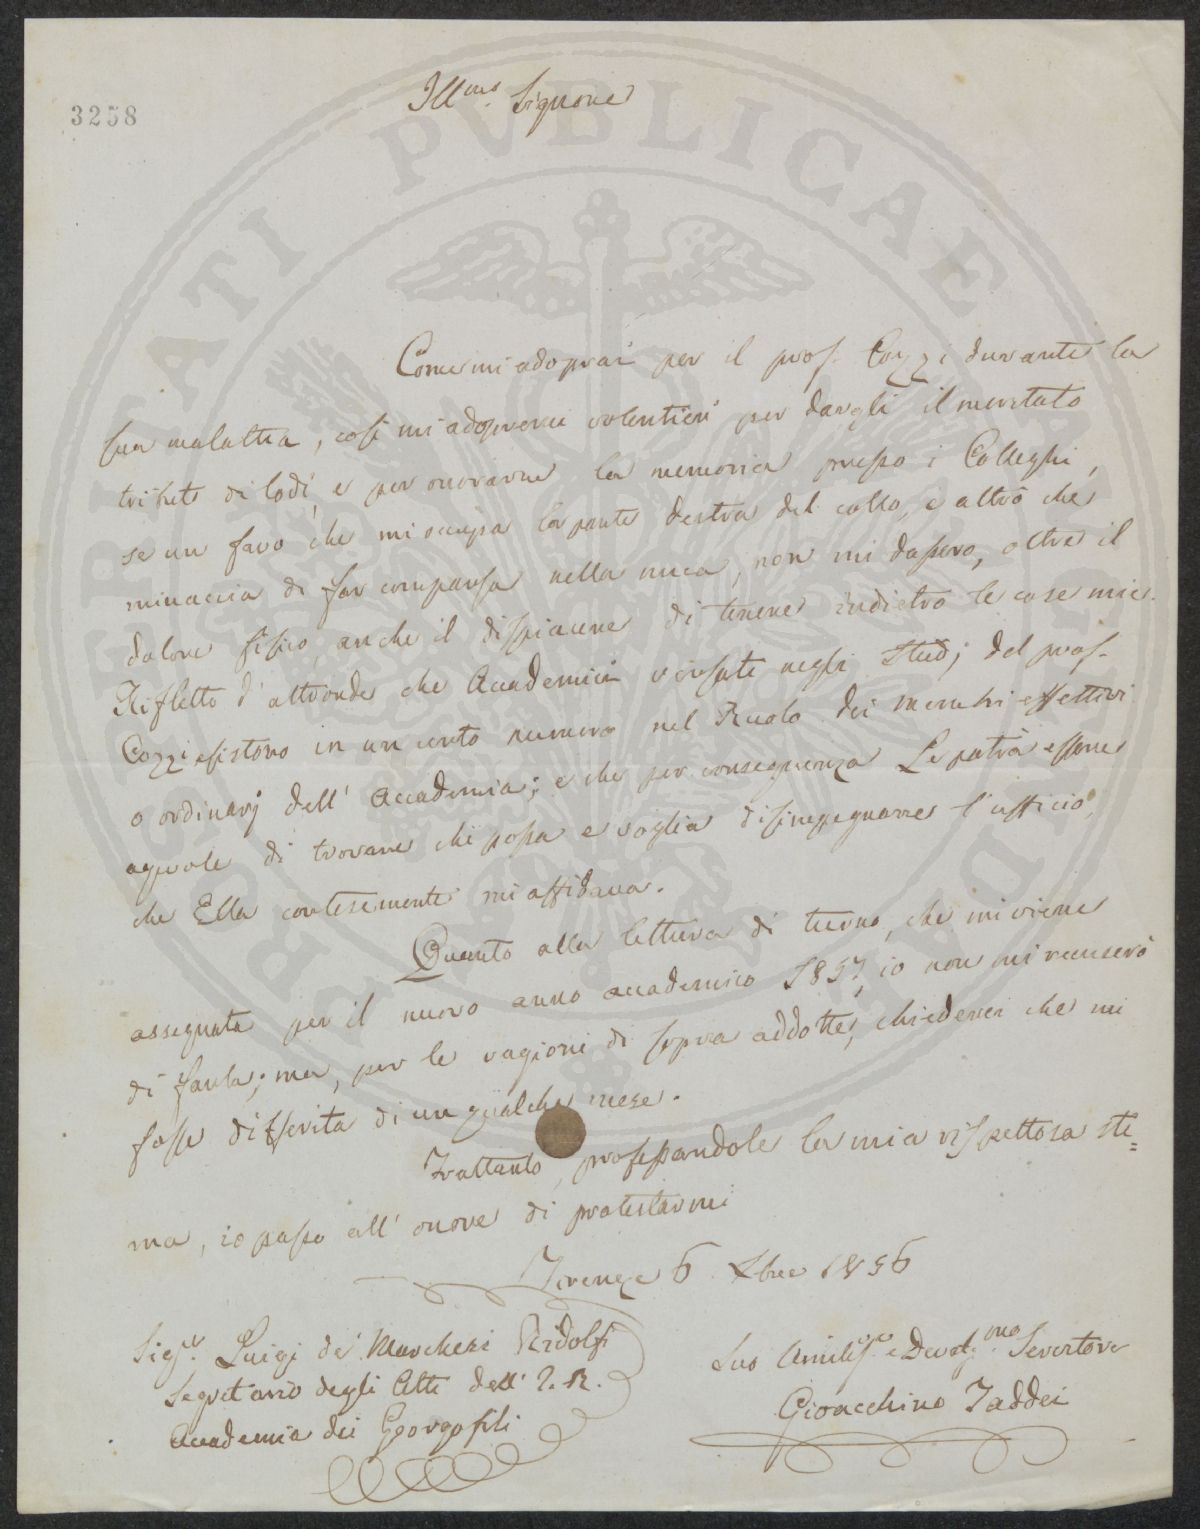 3258
Ill.mo Signore
Come mi adoprai per il prof. Cozzi durante la
sua malattia, così mi adoprerei volentieri per dargli il meritato
tributo di lodi, e per onorarne la memoria presso i Colleghi,
se un favo che mi occupa la parte destra del collo, e altro che
minaccia di far comparsa nella nuca, non mi dassero, oltre il
dolore fisico, anche il dispiacere di tenere indietro le cose mie.
Rifletto d'altronde che Accademici versati negli Studj del prof.
Cozzi esistono in un certo numero nel Ruolo dei membri effettivi
o ordinarj dell'Accademia; e che per conseguenza Le potrà essere
agevole di trovare chi possa e voglia disimpegnare l'ufficio,
che Ella cortesemente mi affidava.
Quanto alla lettura di turno, che mi viene
assegnata per il nuovo anno accademico 1857, io non mi recuserò
di farla; ma, per le ragioni di sopra addotte, chiederei che mi
fosse differita di un qualche mese.
Frattanto, professandole la mia rispettosa sti=
ma, io passo all'onore di protestarmi
Firenze 6 Xbre 1856
Sig.r Luigi de' Marchesi Ridolfi
Segretario degli Atti dell'I. R.
Accademia dei Georgofili
Suo Umiliss.o e Devot.mo Servitore
Gioacchino Taddei
PERSCRUTATI PVBLICAE